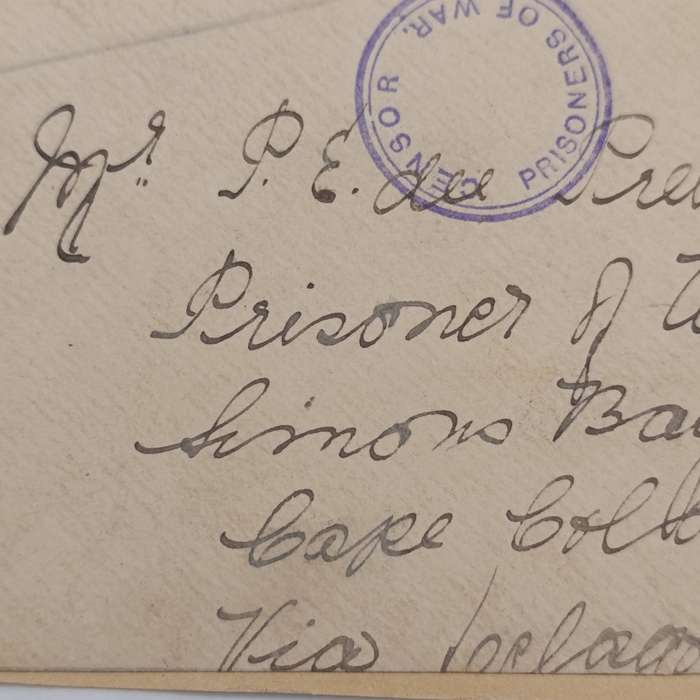 CENSOR PRISONERS OF WAR.
Mr. P. E. du Pre
Prisoner of W
Simons Bay
Cape Col
Via